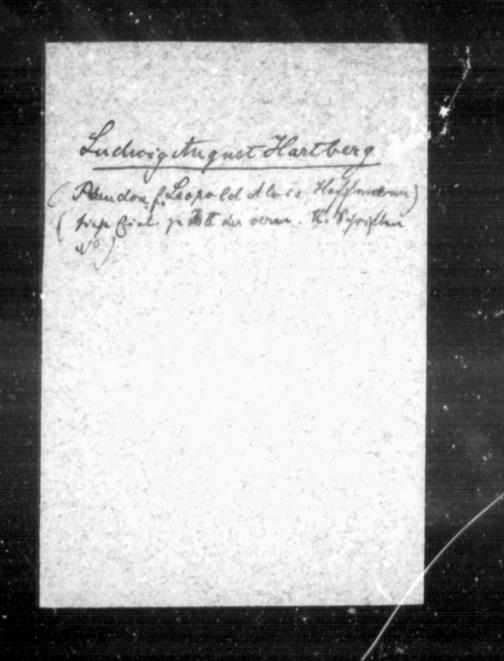 Ludwig August Hartberg
(Pseudon f. Leopold Alois Hoffmann)
(siehe Einl. zu Bd II der verm. kl. Schriften